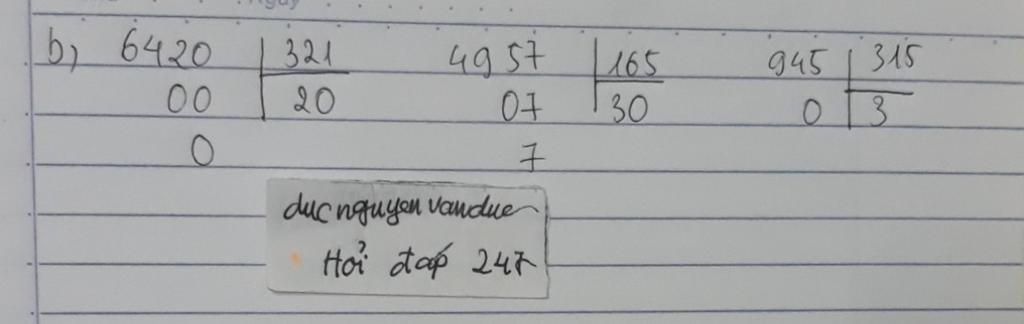 b, 6420 321 4957 165 945 315
00 20 07 30 0 3
0 7
ducnguyenvanduc
Hỏi đáp 247